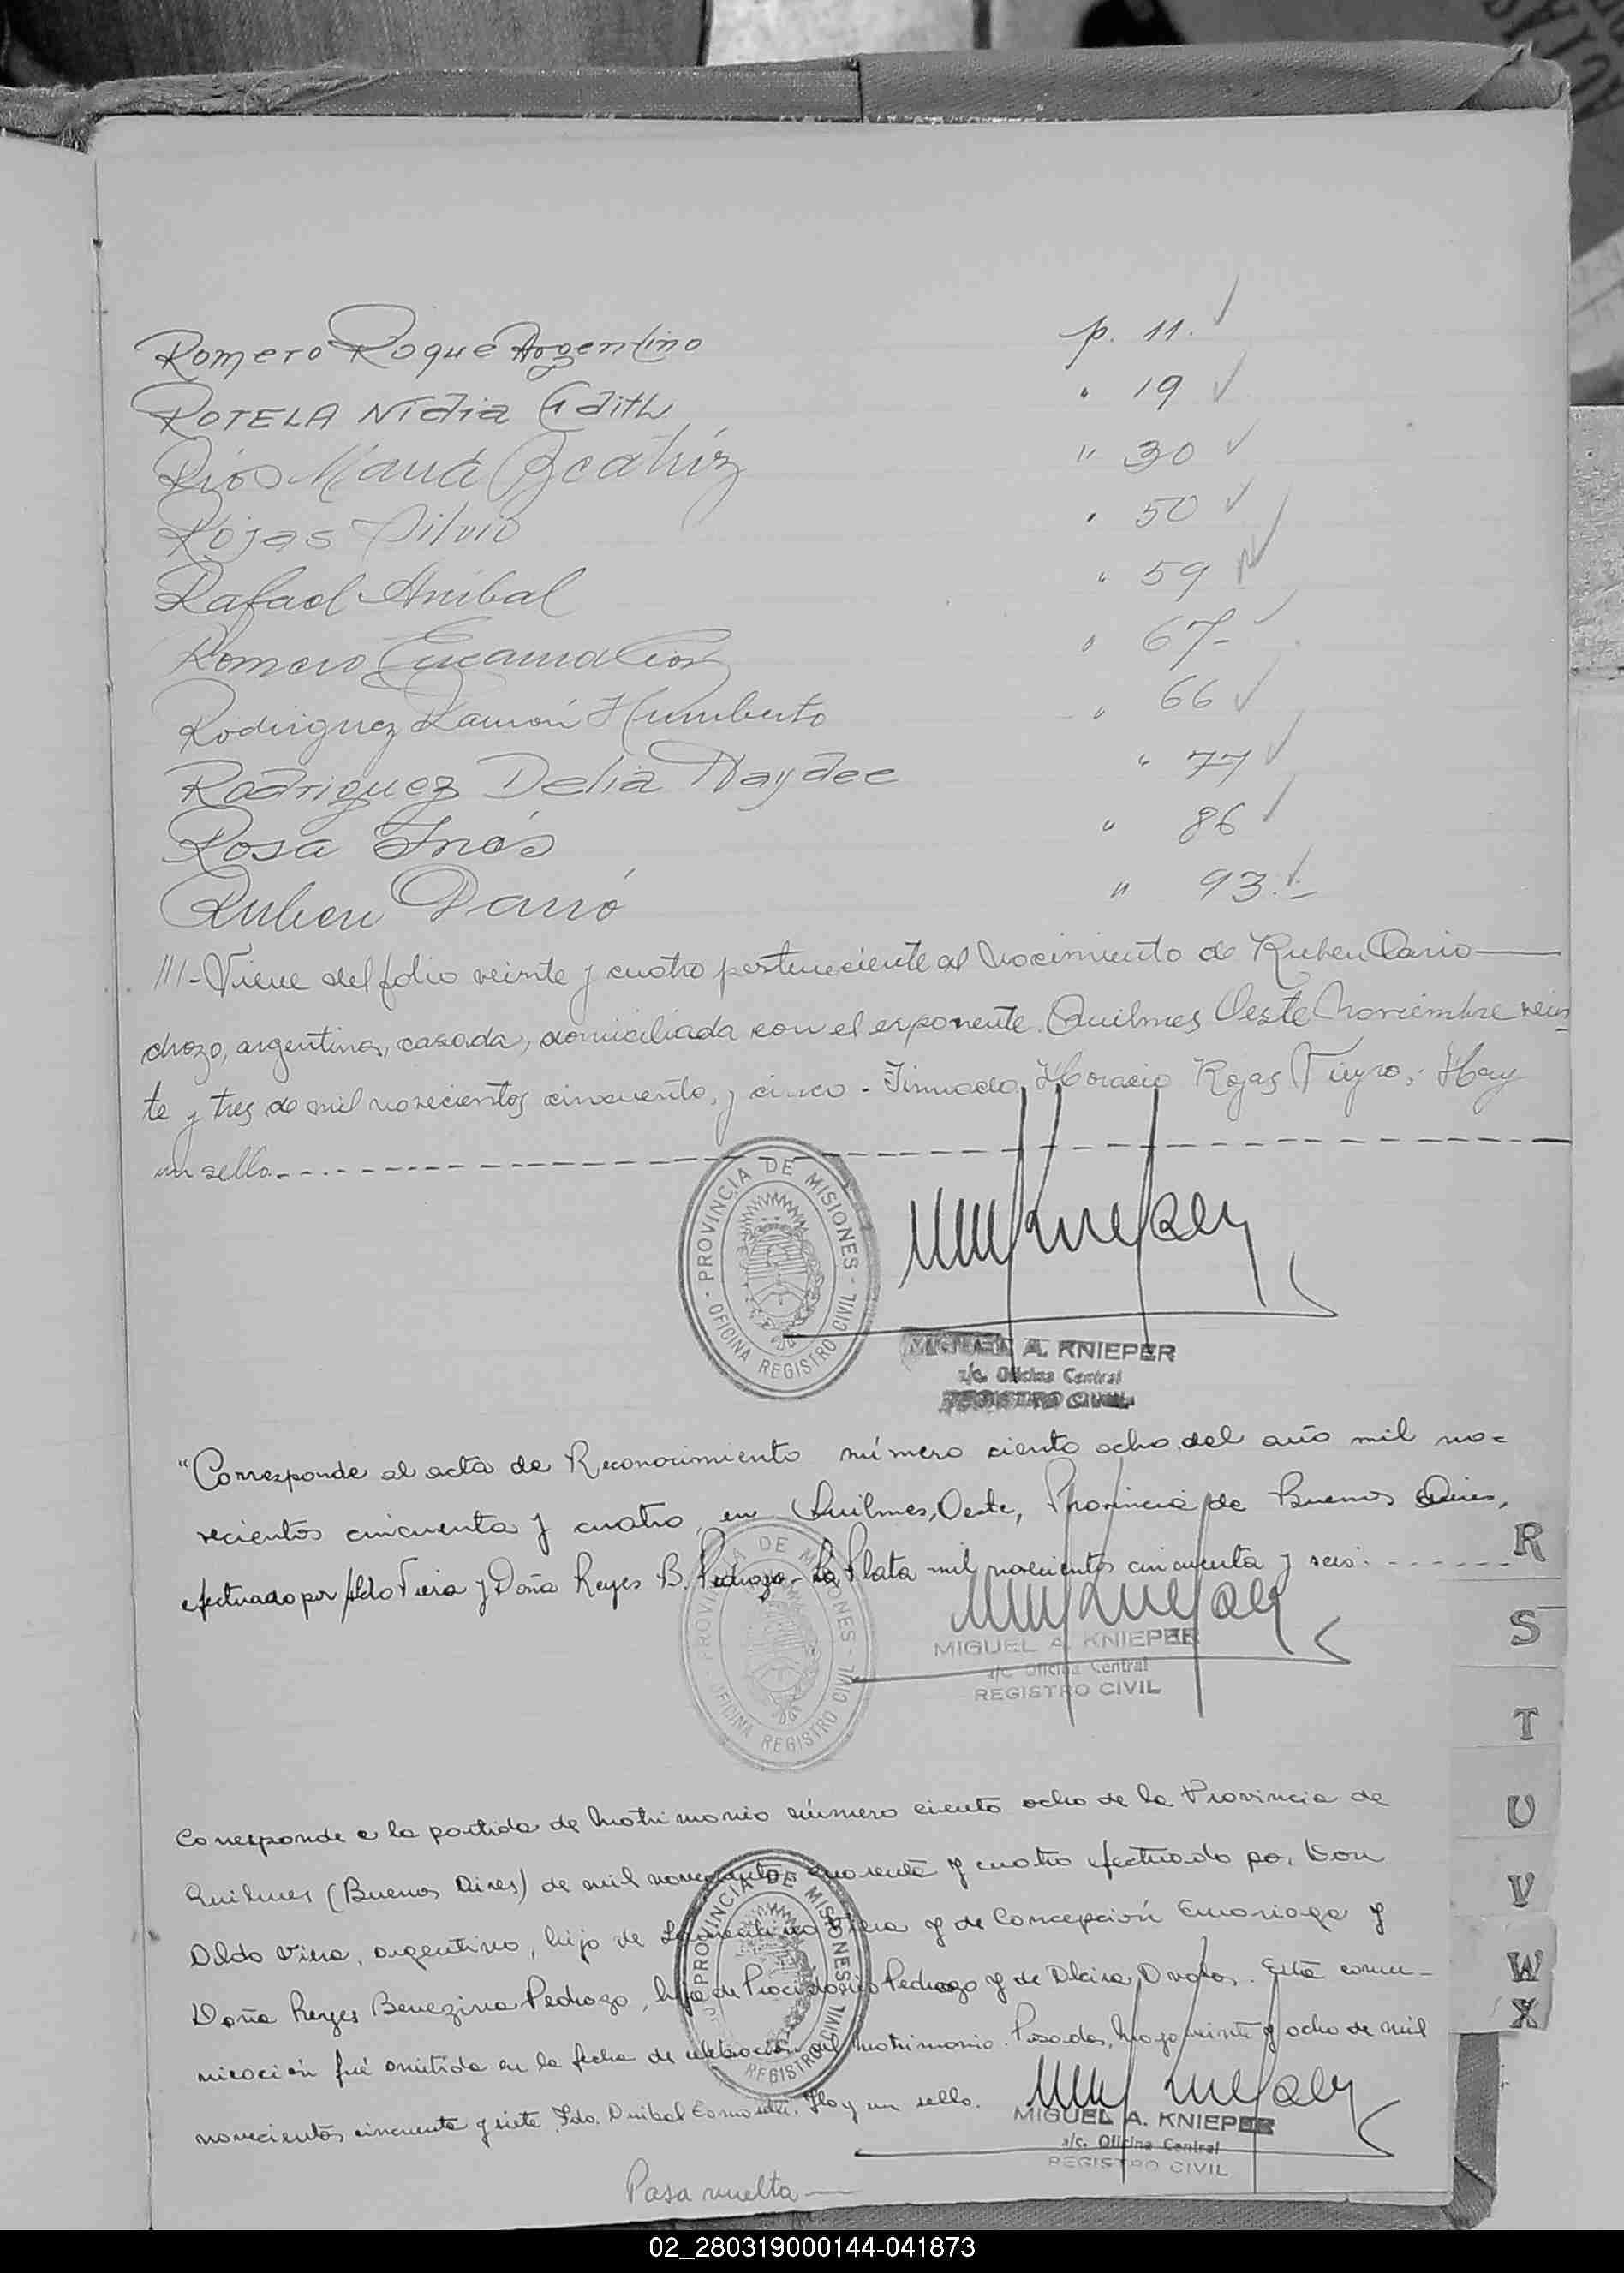 Romero Roque Argentino p. 11.
ROTELA Nidia Edith " 19
Ríos María Beatríz " 30
Rojas Silvio " 50
Rafael Anibal " 59
Romero Encarnación " 67-
Rodriguez Ramón Humberto " 66
Rodriguez Delia Haydee " 77
Rosa Inés " 86
Ruben Darió " 93.-
///- Viene del folio veinte y cuatro perteneciente al Nacimiento de Ruben Dario
drozo, argentina, casada, domiciliada con el exponente. Quilmes Oeste Noviembre vein
te y tres de mil novecientos cincuenta, y cinco - Firmado, Horacio Rojas Hay
un sello.
- PROVINCIA DE MISIONES - OFICINA REGISTRO CIVIL
MIGUEL A. KNIEPER
a/c. Oficina Central
REGISTRO CIVIL
"Corresponde al acta de Reconocimiento número ciento ocho del año mil no=
vecientos cincuenta y cuatro, en Quilmes, Oeste, Provincia de Buenos Aires,
efectuado por Aldo Viera y Doña Reyes B. Pedrozo - La Plata mil novecientos cincuenta y seis.
- PROVINCIA DE MISIONES - OFICINA REGISTRO CIVIL
MIGUEL A. KNIEPER
a/c. Oficina Central
REGISTRO CIVIL
Corresponde a la partida de Matrimonio número ciento ocho de la Provincia de
Quilmes (Buenos Aires) de mil novecientos cuarenta y cuatro efectuado por Don
Aldo Viera, argentino, hijo de Viera y de Concepción y
Doña Reyes Benezina Pedrozo, hija de Pedrozo y de Alcira. Esta comu-
nicación fué omitida en la fecha de celebración del Matrimonio. Posadas, Mayo veinte y ocho de mil
novecientos cincuenta y siete. Fdo. Anibal. Hay un sello.
PROVINCIA DE MISIONES REGISTRO CIVIL
MIGUEL A. KNIEPER
a/c. Oficina Central
REGISTRO CIVIL
Pasa vuelta
R
S
T
U
V
W
X
02_280319000144-041873